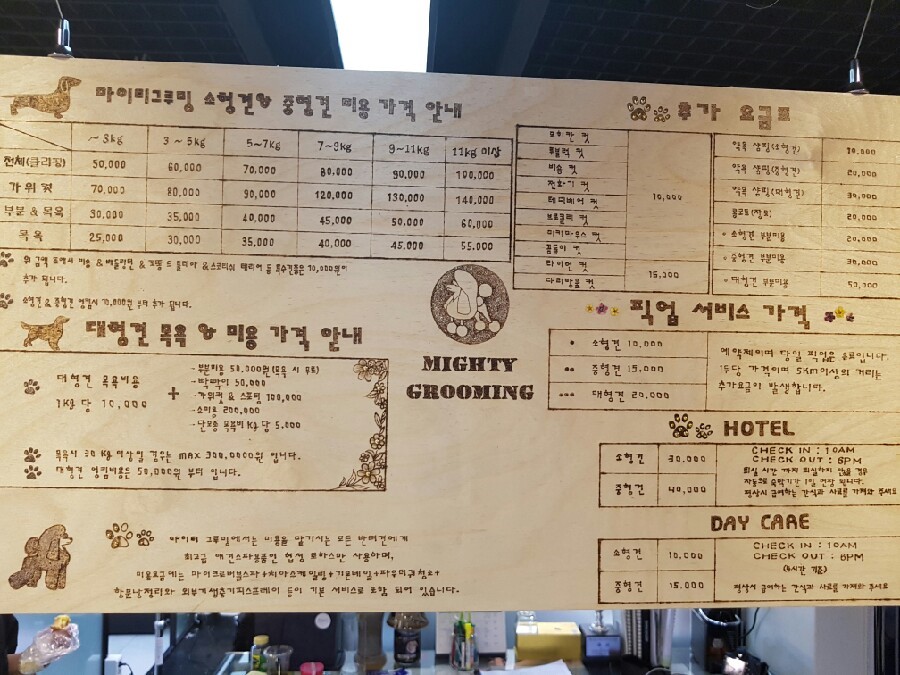 마이티그루밍 소형견& 중형견 미용 가격 안내
~3kg 3~5kg 5~7kg 7~9kg 9~11kg 11kg 이상
전체(클리핑) 50,000 60,000 70,000 80,000 90,000 100,000
가위 컷 70,000 80,000 90,000 120,000 130,000 140,000
부분&목욕 30,000 35,000 40,000 45,000 50,000 60,000
목욕 25,000 30,000 35,000 40,000 45,000 55,000
추가 됩니다.
소형견&중형견 엉킴시 10,000원 부터 추가 됩니다.
추가 요금표
모히칸 컷
비숑 컷
테디베어 컷
브로콜리 컷
미키마우스 컷
10,000
라이언 컷
다리방울 컷
15,000
약욕 샴핑(소형견)
약욕 샴핑(중형견) 20,000
약욕 샴핑(대형견) 30,000
20,000
소형견 부분미용 20,000
중형견 부분미용 30,000
대형견 부분미용 50,000
대형견 목욕& 미용 가격 안내
대형견 목욕비용
1kg 당 10,000
+
-부분미용 50,000원(목욕 시 무료)
-빡빡이 50,000
-가위컷 & 스포팅 100,000
-쇼미용 200,000
-단모종 목욕비 kg 당 5,000
목욕시 30 kg 이상일 경우는 max 300,000원 입니다.
대형견 엉킴비용은 50,000원 부터 입니다.
MIGHTY
GROOMING
픽업 서비스 가격
소형견 10,000
중형견 15,000
대형견 20,000
예약제이며 당일 픽업은 유료입니다.
편도당 가격이며 5km이상의 거리는
추가요금이 발생합니다.
HOTEL
소형견 30,000
중형견 40,000
CHECK IN : 10AM
CHECK OUT : 8PM
퇴실 시간 까지 퇴실하지 않을 경우
자동으로 숙박기간 1일 연장 됩니다.
평상시 급여하는 간식과 사료를 가져와 주세요
DAY CARE
소형견 10,000
중형견 15,000
CHECK IN : 10AM
CHECK OUT : 8PM
평상시 급여하는 간식과 사료를 가져와 주세요
마이티 그루밍에서는 미용을 맡기시는 모든 반려견에게
최고급 애견스파용품인 헙성 로하스만 사용하며,
항문낭정리와 외부기생충기피스프레이 등이 기본 서비스로 포함 되어 있습니다.